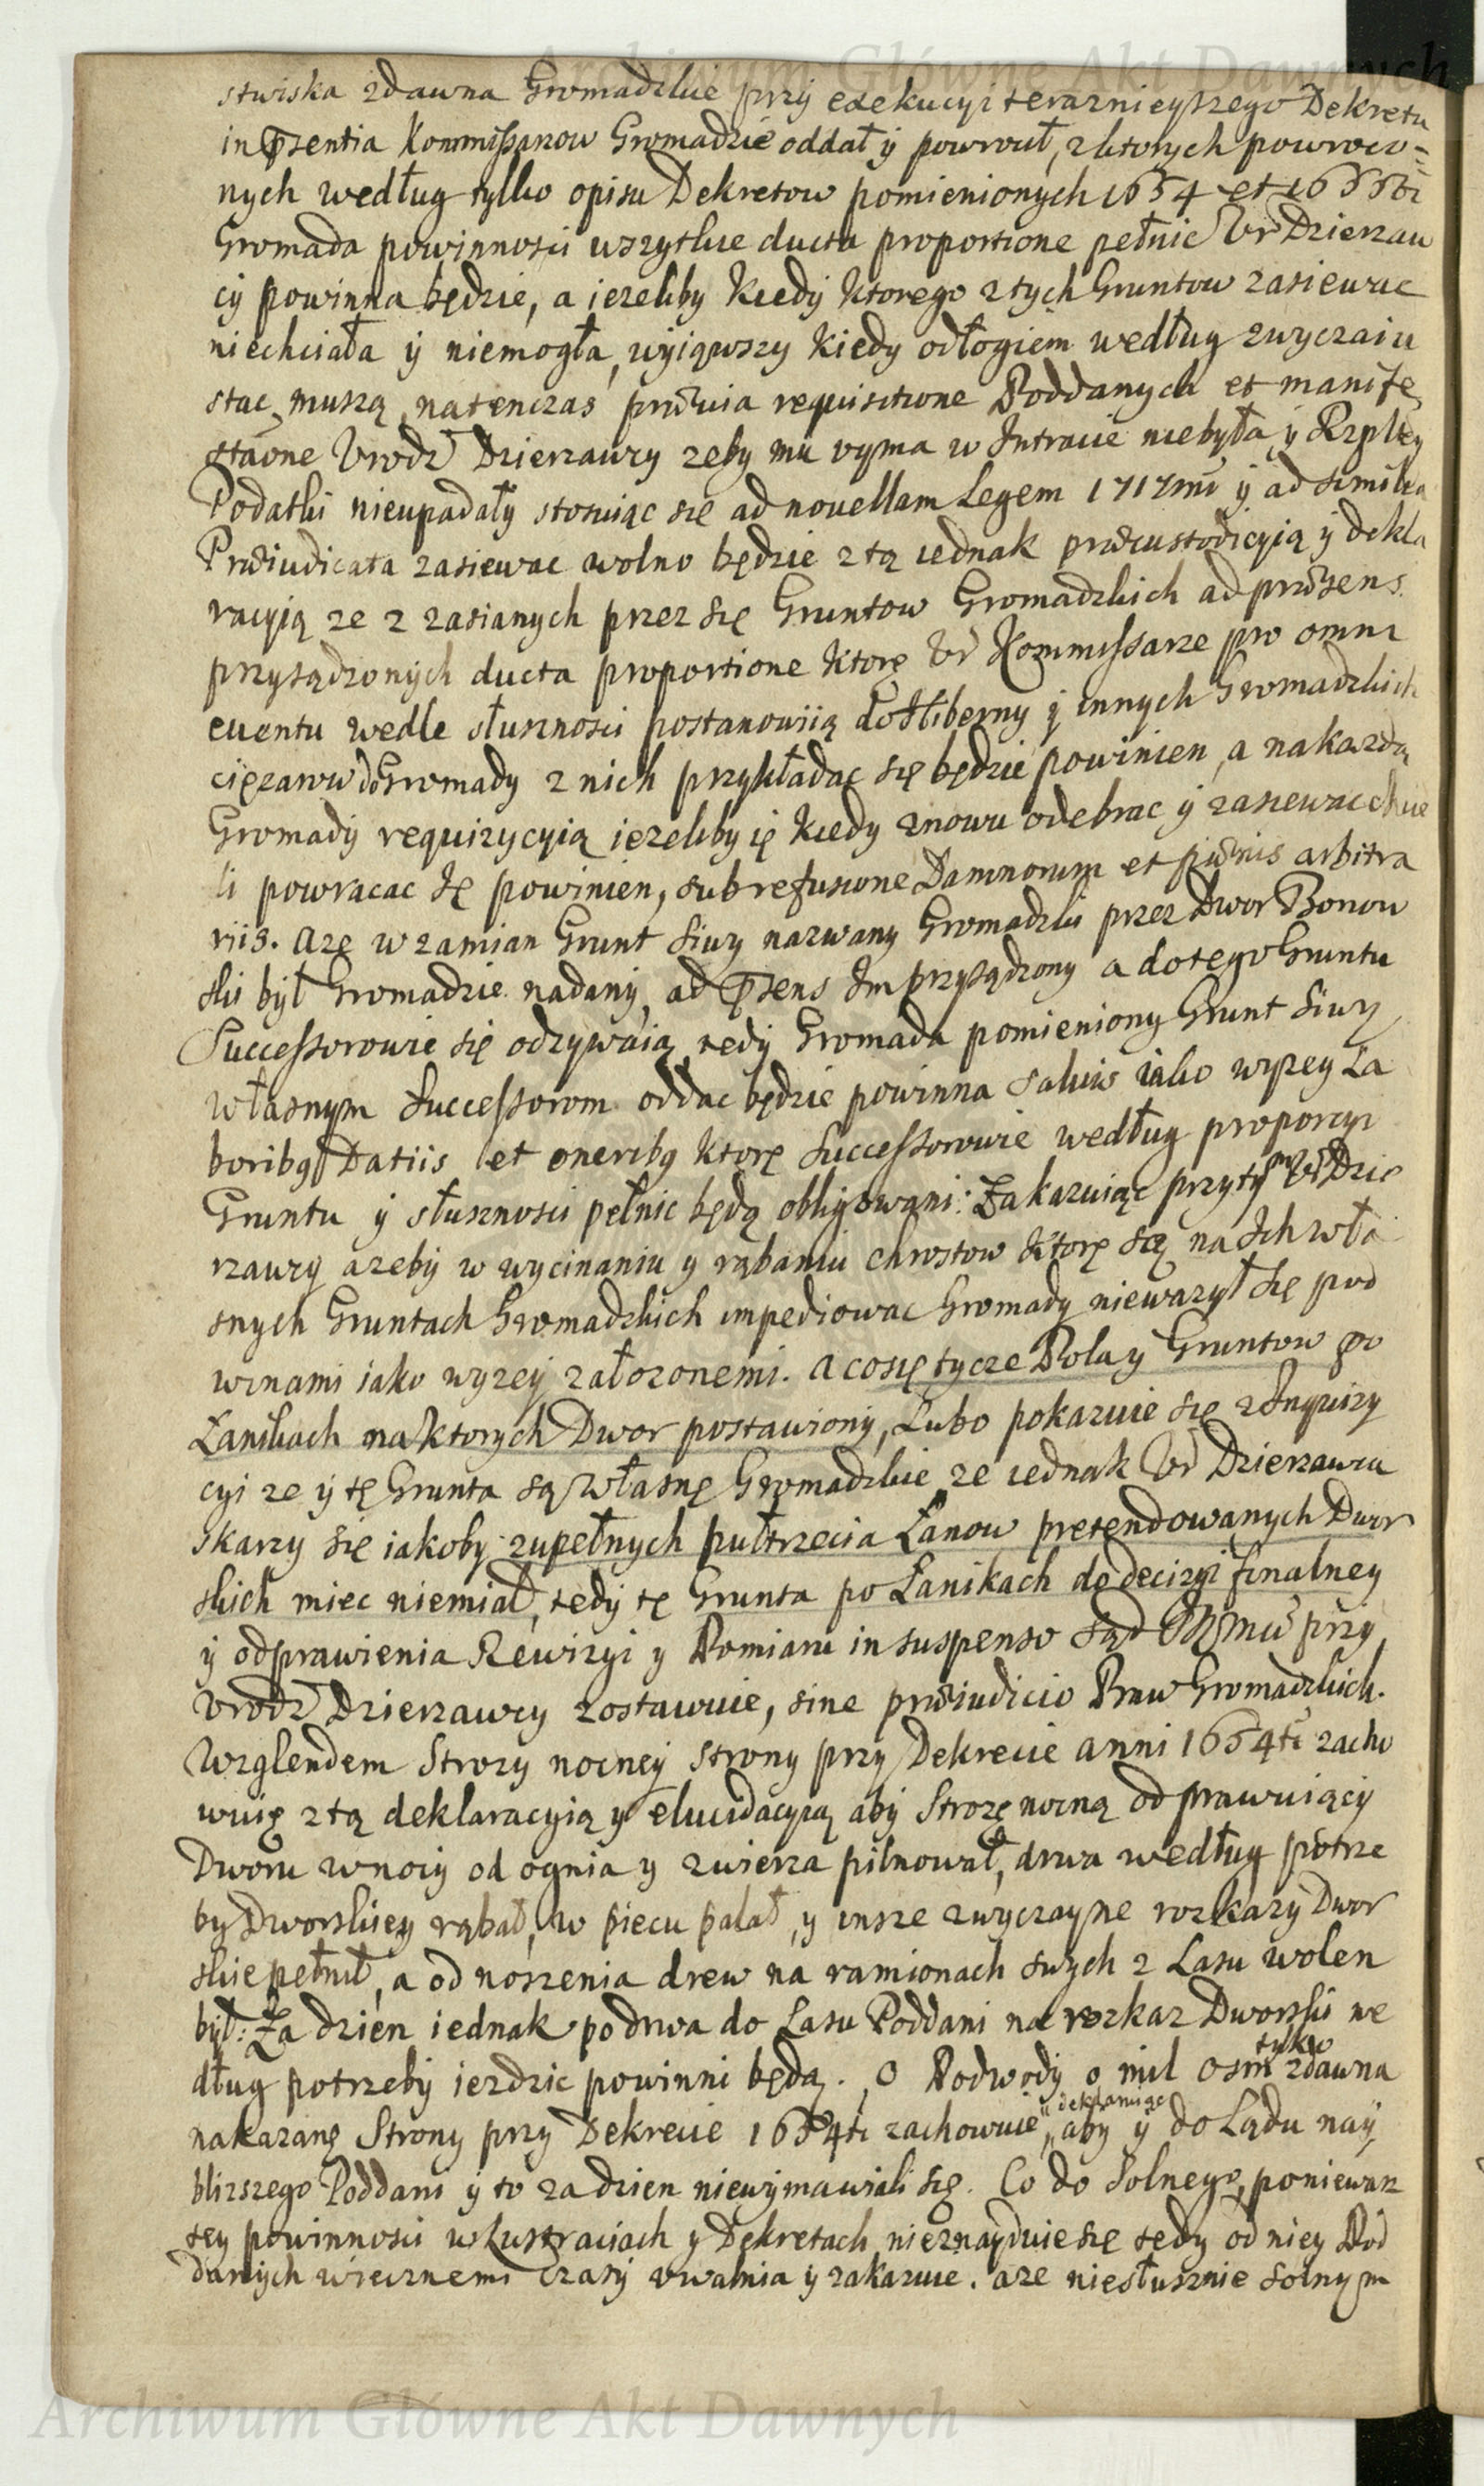 Archiwum Główne Akt Dawnych
stwiska zdawna Gromadzkie przy exekucyi teraznieyszego Dekretu
in Psentia Kommissarzow Gromadzie oddał y powrocił, z ktorych powroco=
nych według tylko opisu Dekretow pomienionych 1654 et
Gromada powinnosci wszytkie ducta proportione pełnic Ur Dzierzaw
cy powinna będzie, a iezeliby kiedy ktorego z tych Gruntow zasiewac
niechciała y niemogła, wyiąwszy kiedy odłogiem według zwyczaiu
stac muszą, natenczas prævia requisitione Poddanych et manife
staõne Urodz Dzierzawcy zeby mu uyma w Intracie niebyła y Rzpltey
Podatki nieupadały stosuiąc się ad novellam Legem 1717mi y ad similia
Præiudicata zasiewac wolno będzie z tą iednak præcustodicyią y dekla
racyią ze z zasianych przez się Gruntow Gromadzkich ad præsens
przysądzonych ducta proportione ktorę Ur Kommissarze pro omni
euentu wedle słusznosci postanowiią do Hiberny y innych Gromadzkich
cięzarow do Gromady z nich przykładac się będzie powinien, a nakazdą
Gromady requizycyią iezeliby ię kiedy znowu odebrac y zasiewac chcie
li powracac Ię powinien, sub refusione Damnorum et pænis arbitra
riis. Aze w zamian Grunt Siwy nazwany Gromadzki przez Dwor Bonow
ski był Gromadzie nadany, ad Psens Im przysądzony a do tego Gruntu
Successorowie się odzywaią, tedy Gromada pomieniony Grunt Siwy
własnym Successorom oddac będzie powinna salvis iako wyzey La
boribq Datiis et oneribq ktorę Successorowie według proporcyi
Gruntu y słusznosci pełnic będą obligowani: Zakazuiąc przytym Ur Dzie
rzawcy azeby w wycinaniu y rąbaniu chrostow ktorę są na Ich wła
snych Gruntach Gromadzkich impediowac Gromady niewazył się pod
winami iako wyzey załozonemi. A co się tycze Pola y Gruntow po
Łanikach na ktorych Dwor postawiony, Lubo pokazuie się z Inquizy
cyi ze y tę Grunta są własnę Gromadzkie, ze iednak Ur Dzierzawca
skarzy się iakoby zupełnych pułtrzecia Łanow pretendowanych Dwor
skich miec niemiał, tedy tę Grunta po Łanikach do decizyi finalney
y odprawienia Rewizyi y Pomiaru in suspenso sąd przy
Urodz Dzierzawcy zostawuie, sine præiudicio Praw Gromadzkich.
Wzglendem Strozy nocney Strony przy Dekrecie anni 1654ti zacho
wuię z tą deklaracyią y elucidacyią aby Strozę nocną odprawuiący
Dworu w nocy od ognia y zwierza pilnował, drwa według potrze
by Dworskiey rąbał, w piecu palał, y insze zwyczayne rozkazy Dwor
skie pełnił, a od noszenia drew na ramionach swych z Lasu wolen
był: Za dzien iednak po drwa do Lasu Poddani na rozkaz Dworski we
dług potrzeby iezdzic powinni będą. O Podwody o mil osm tylko zdawna
nakazanę Strony przy Dekrecie 1654ti zachowuie, deklaruiąc aby y do Lądu nay
blizszego Poddani y to za dzien niewymawiali się. Co do Solnego, poniewaz
tey powinnosci w Lustraciach y Dekretach nieznayduie się tedy od niey Pod
danych wiecznemi czasy uwalnia y zakazuie. aze niesłusznie solnym
Archiwum Główne Akt Dawnych